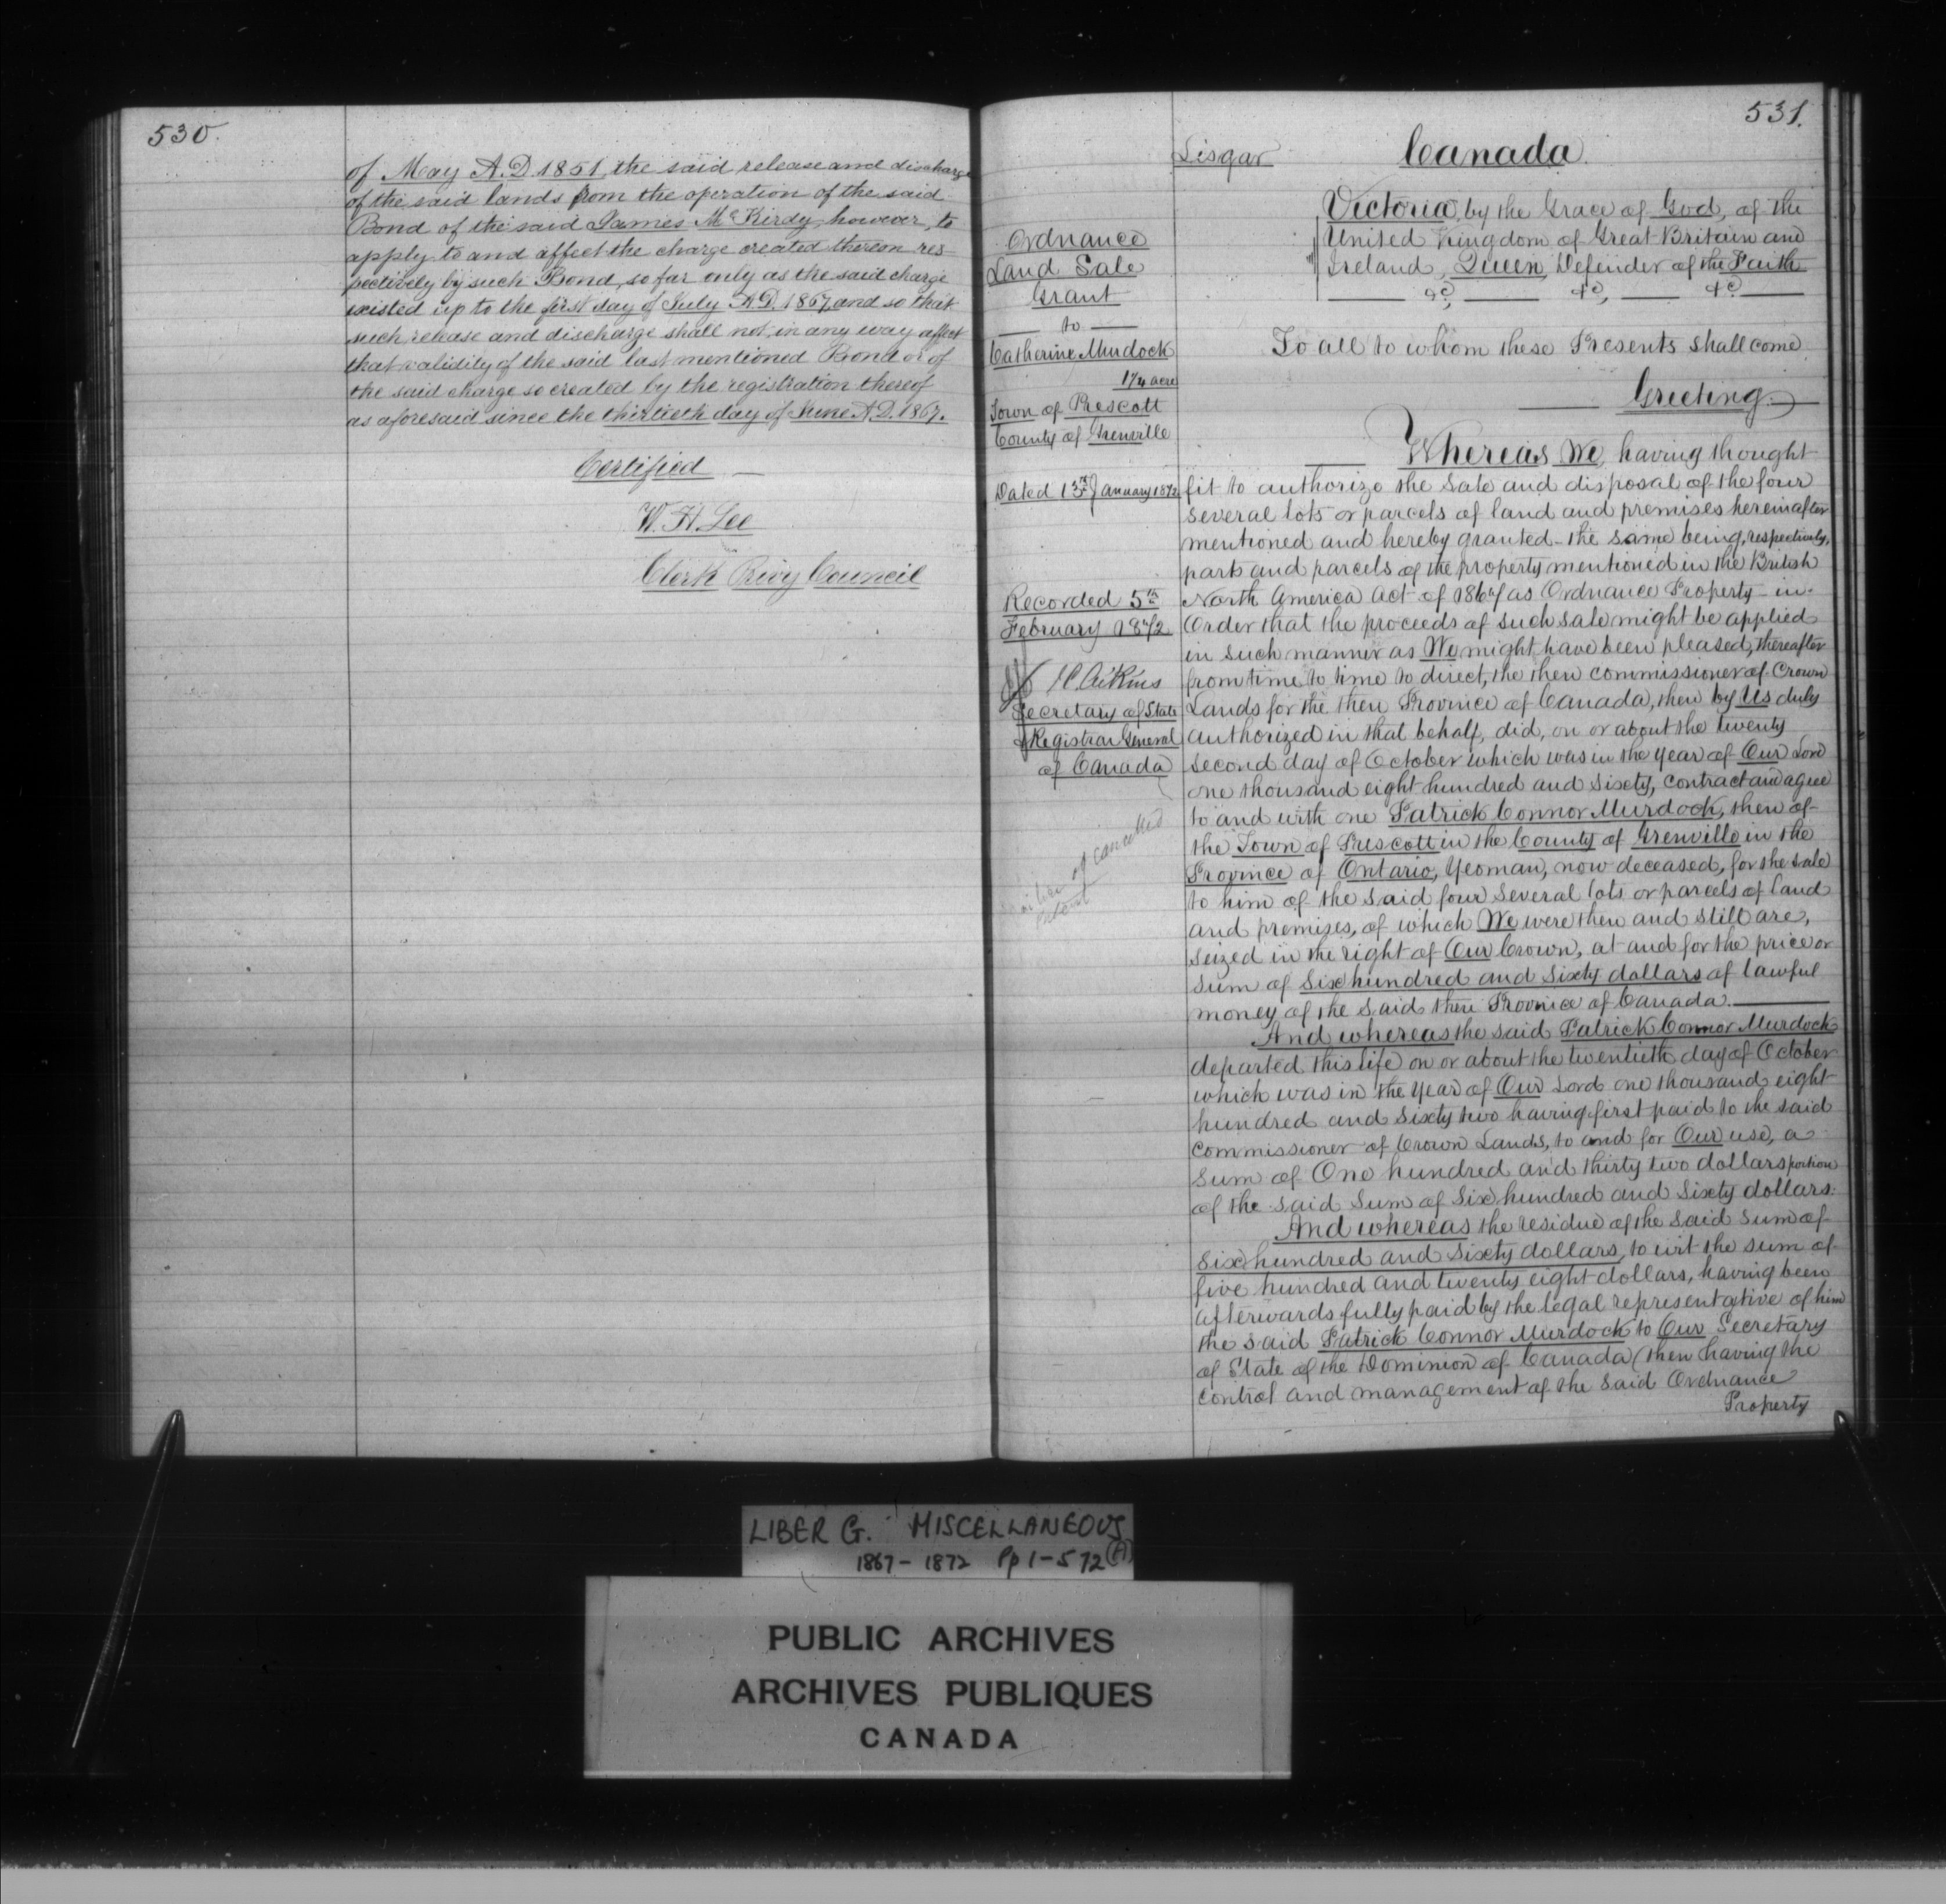 530.
of May A.D. 1851, the said release and discharge
of the said lands from the operation of the said
Bond of the said James McKirdy, however, to
apply to and affect the charge created thereon res-
pectively by such Bond, so far only as the said charge
existed up to the first day of July A.D. 1867, and so that
such release and discharge shall not in any way affect
that validity of the said last mentioned Bond or of
the said charge so created by the registration thereof
as aforesaid since the thirtieth day of June A.D. 1867.
Certified
W. H. Lee
Clerk Privy Council
531.
Lisgar
Canada
Victoria, by the Grace of God, of the
United Kingdom of Great Britain and
Ireland, Queen, Defender of the Faith
&c, &c, &c
To all to whom these Presents shall come
Greeting
Ordnance
Land Sale
Grant
to
Catherine Murdock
1 1/4 acre
Town of Prescott
County of Grenville
Dated 13th January 1872
Recorded 5th
February 1872
J C Aikins
Secretary of State
& Registrar General
of Canada
of cancelled
patent
Whereas We, having thought
fit to authorize the sale and disposal of the four
several lots or parcels of land and premises hereinafter
mentioned and hereby granted - the same being, respectively,
parts and parcels of the property mentioned in the British
North America Act of 1867 as Ordnance Property - in
Order that the proceeds of such sale might be applied
in such manner as We might have been pleased, thereafter
from time to time to direct, the then commissioner of Crown
Lands for the then Province of Canada, then by Us duly
authorized in that behalf, did, on or about the twenty
second day of October which was in the year of Our Lord
one thousand eight hundred and sixty, contract and agree
to and with one Patrick Connor Murdock, then of
the Town of Prescott in the County of Grenville in the
Province of Ontario, Yeoman, now deceased, for the sale
to him of the said four several lots or parcels of land
and premises, of which We were then and still are,
seized in the right of Our Crown, at and for the price or
sum of six hundred and sixty dollars of lawful
money of the said then Province of Canada.
And whereas the said Patrick Connor Murdock
departed this life on or about the twentieth day of October
which was in the year of Our Lord one thousand eight
hundred and sixty two having first paid to the said
commissioner of Crown Lands, to and for Our use, a
sum of One hundred and thirty two dollars portion
of the said sum of six hundred and sixty dollars.
And whereas the residue of the said sum of
six hundred and sixty dollars, to wit the sum of
five hundred and twenty eight dollars, having been
afterwards fully paid by the legal representative of him
the said Patrick Connor Murdock to Our Secretary
of State of the Dominion of Canada (then having the
control and management of the said Ordnance
Property
LIBER G. MISCELLANEOUS
1867 - 1872 Pp 1-572 (A)
PUBLIC ARCHIVES
ARCHIVES PUBLIQUES
CANADA